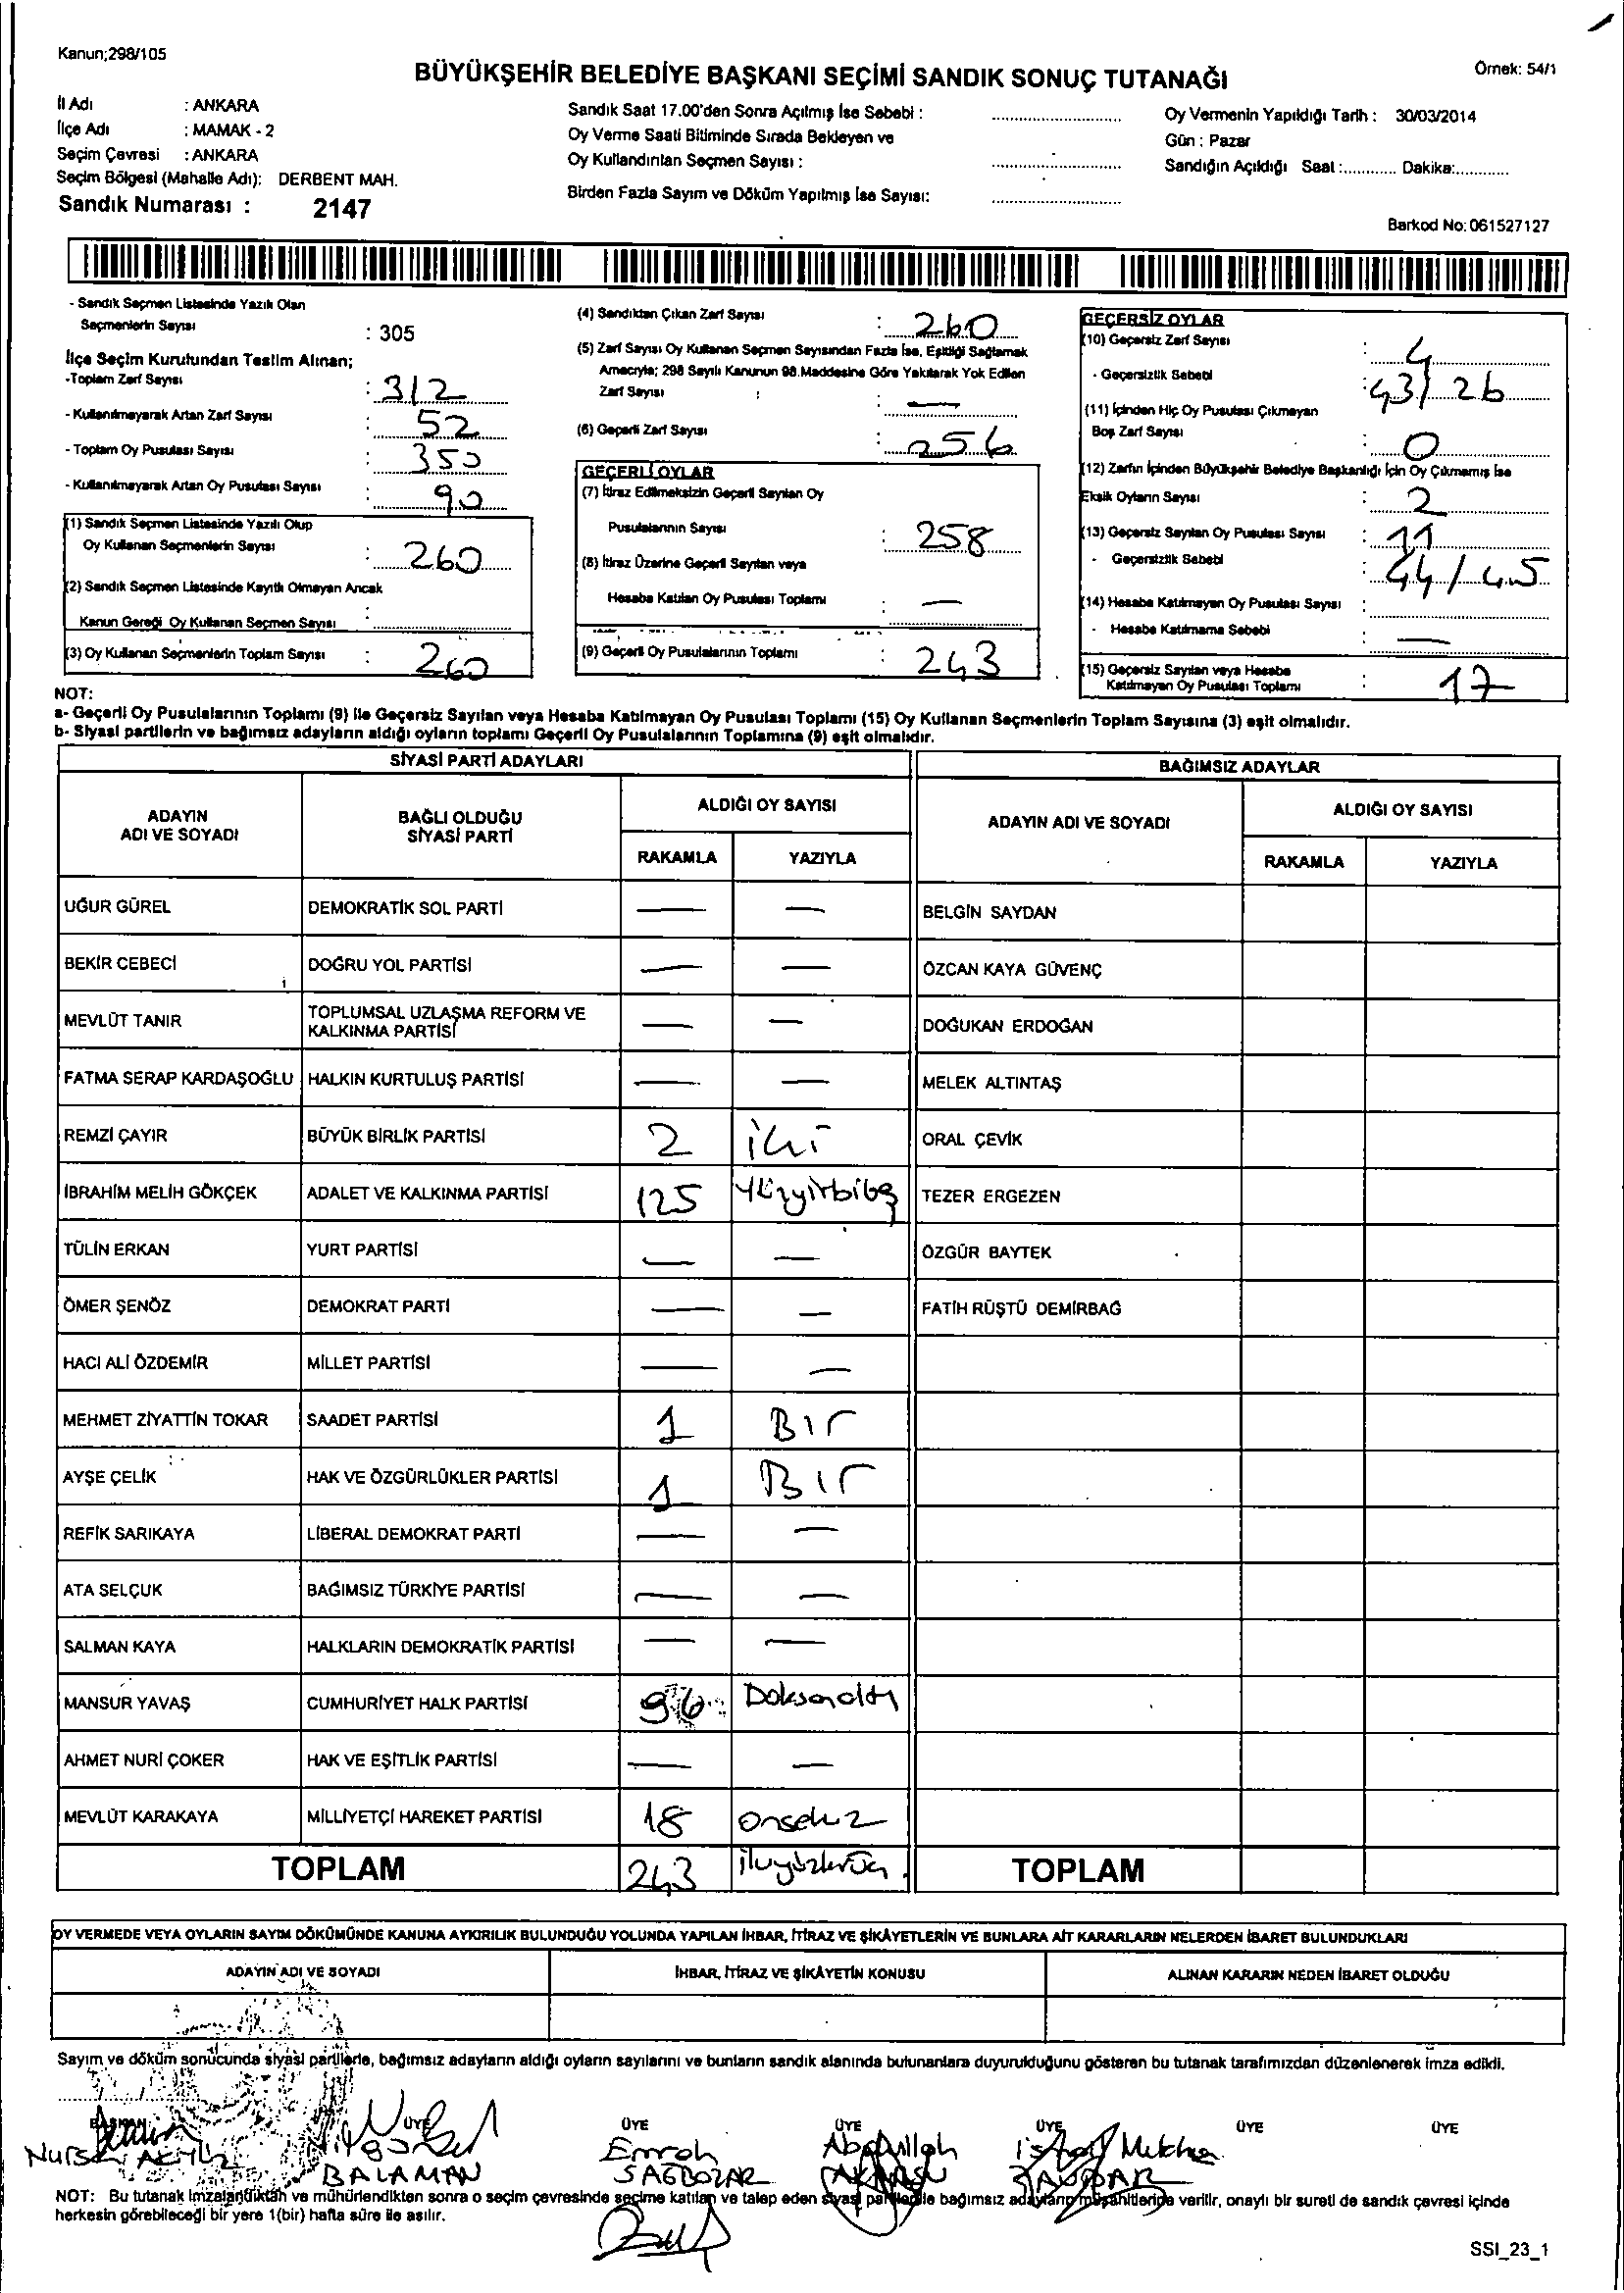 Kanun;298/105
Örnek: 54/1
BÜYÜKŞEHİR BELEDİYE BAŞKANI SEÇİMİ SANDIK SONUÇ TUTANAĞI
İl Adı : ANKARA
İlçe Adı : MAMAK - 2
Seçim Çevresi : ANKARA
Seçim Bölgesi (Mahalle Adı): DERBENT MAH.
Sandık Numarası : 2147
Sandık Saat 17.00'den Sonra Açılmış İse Sebebi :
Oy Verme Saati Bitiminde Sırada Bekleyen ve
Oy Kullandırılan Seçmen Sayısı :
Birden Fazla Sayım ve Döküm Yapılmış İse Sayısı:
Oy Vermenin Yapıldığı Tarih : 30/03/2014
Gün : Pazar
Sandığın Açıldığı Saat :............ Dakika:............
Barkod No: 061527127
- Sandık Seçmen Listesinde Yazılı Olan
Seçmenlerin Sayısı : 305
İlçe Seçim Kurulundan Teslim Alınan;
-Toplam Zarf Sayısı : 312
- Kullanılmayarak Artan Zarf Sayısı : 52
- Toplam Oy Pusulası Sayısı : 350
- Kullanılmayarak Artan Oy Pusulası Sayısı : 90
(1) Sandık Seçmen Listesinde Yazılı Olup
Oy Kullanan Seçmenlerin Sayısı : 260
(2) Sandık Seçmen Listesinde Kayıtlı Olmayan Ancak
Kanun Gereği Oy Kullanan Seçmen Sayısı :
(3) Oy Kullanan Seçmenlerin Toplam Sayısı : 260
(4) Sandıktan Çıkan Zarf Sayısı : 260
(5) Zarf Sayısı Oy Kullanan Seçmen Sayısından Fazla İse, Eşitliği Sağlamak
Amacıyla; 298 Sayılı Kanunun 98.Maddesine Göre Yakılarak Yok Edilen
Zarf Sayısı : —
(6) Geçerli Zarf Sayısı : 256
GEÇERLİ OYLAR
(7) İtiraz Edilmeksizin Geçerli Sayılan Oy
Pusulalarının Sayısı : 258
(8) İtiraz Üzerine Geçerli Sayılan veya
Hesaba Katılan Oy Pusulası Toplamı : —
(9) Geçerli Oy Pusulalarının Toplamı : 243
GEÇERSİZ OYLAR
(10) Geçersiz Zarf Sayısı : 4
- Geçersizlik Sebebi : 43/26
(11) İçinden Hiç Oy Pusulası Çıkmayan
Boş Zarf Sayısı : 0
(12) Zarfın İçinden Büyükşehir Belediye Başkanlığı İçin Oy Çıkmamış İse
Eksik Oyların Sayısı : 2
(13) Geçersiz Sayılan Oy Pusulası Sayısı : 11
- Geçersizlik Sebebi : 44/45
(14) Hesaba Katılmayan Oy Pusulası Sayısı :
- Hesaba Katılmama Sebebi : —
(15) Geçersiz Sayılan veya Hesaba
Katılmayan Oy Pusulası Toplamı : 17
NOT:
a- Geçerli Oy Pusulalarının Toplamı (9) ile Geçersiz Sayılan veya Hesaba Katılmayan Oy Pusulası Toplamı (15) Oy Kullanan Seçmenlerin Toplam Sayısına (3) eşit olmalıdır.
b- Siyasi partilerin ve bağımsız adayların aldığı oyların toplamı Geçerli Oy Pusulalarının Toplamına (9) eşit olmalıdır.
SİYASİ PARTİ ADAYLARI
BAĞIMSIZ ADAYLAR
ADAYIN ADI VE SOYADI
BAĞLI OLDUĞU SİYASİ PARTİ
ALDIĞI OY SAYISI
RAKAMLA YAZIYLA
ADAYIN ADI VE SOYADI
ALDIĞI OY SAYISI
RAKAMLA YAZIYLA
UĞUR GÜREL DEMOKRATİK SOL PARTİ — — BELGİN SAYDAN
BEKİR CEBECİ DOĞRU YOL PARTİSİ — — ÖZCAN KAYA GÜVENÇ
MEVLÜT TANIR TOPLUMSAL UZLAŞMA REFORM VE KALKINMA PARTİSİ — — DOĞUKAN ERDOĞAN
FATMA SERAP KARDAŞOĞLU HALKIN KURTULUŞ PARTİSİ — — MELEK ALTINTAŞ
REMZİ ÇAYIR BÜYÜK BİRLİK PARTİSİ 2 iki ORAL ÇEVİK
İBRAHİM MELİH GÖKÇEK ADALET VE KALKINMA PARTİSİ 125 TEZER ERGEZEN
TÜLİN ERKAN YURT PARTİSİ — — ÖZGÜR BAYTEK
ÖMER ŞENÖZ DEMOKRAT PARTİ — — FATİH RÜŞTÜ DEMİRBAĞ
HACI ALİ ÖZDEMİR MİLLET PARTİSİ — —
MEHMET ZİYATTİN TOKAR SAADET PARTİSİ 1 Bir
AYŞE ÇELİK HAK VE ÖZGÜRLÜKLER PARTİSİ 1 Bir
REFİK SARIKAYA LİBERAL DEMOKRAT PARTİ — —
ATA SELÇUK BAĞIMSIZ TÜRKİYE PARTİSİ — —
SALMAN KAYA HALKLARIN DEMOKRATİK PARTİSİ — —
MANSUR YAVAŞ CUMHURİYET HALK PARTİSİ 96 Doksanaltı
AHMET NURİ ÇOKER HAK VE EŞİTLİK PARTİSİ — —
MEVLÜT KARAKAYA MİLLİYETÇİ HAREKET PARTİSİ 18 onsekiz
TOPLAM 243 TOPLAM
OY VERMEDE VEYA OYLARIN SAYIM DÖKÜMÜNDE KANUNA AYKIRILIK BULUNDUĞU YOLUNDA YAPILAN İHBAR, İTİRAZ VE ŞİKÂYETLERİN VE BUNLARA AİT KARARLARIN NELERDEN İBARET BULUNDUKLARI
ADAYIN ADI VE SOYADI İHBAR, İTİRAZ VE ŞİKÂYETİN KONUSU ALINAN KARARIN NEDEN İBARET OLDUĞU
Sayım ve döküm sonucunda siyasi partilerle, bağımsız adayların aldığı oyların sayılarını ve bunların sandık alanında bulunanlara duyurulduğunu gösteren bu tutanak tarafımızdan düzenlenerek imza edildi.
BAŞKAN ÜYE ÜYE ÜYE ÜYE ÜYE ÜYE
Emrah Abdullah
BALAMAN SAĞBOZAR
NOT: Bu tutanak imzalandıktan ve mühürlendikten sonra o seçim çevresinde seçime katılan ve talep eden siyasi partiler ile bağımsız adayların müşahitlerine verilir, onaylı bir sureti de sandık çevresi içinde
herkesin görebileceği bir yere 1(bir) hafta süre ile asılır.
SSI_23_1